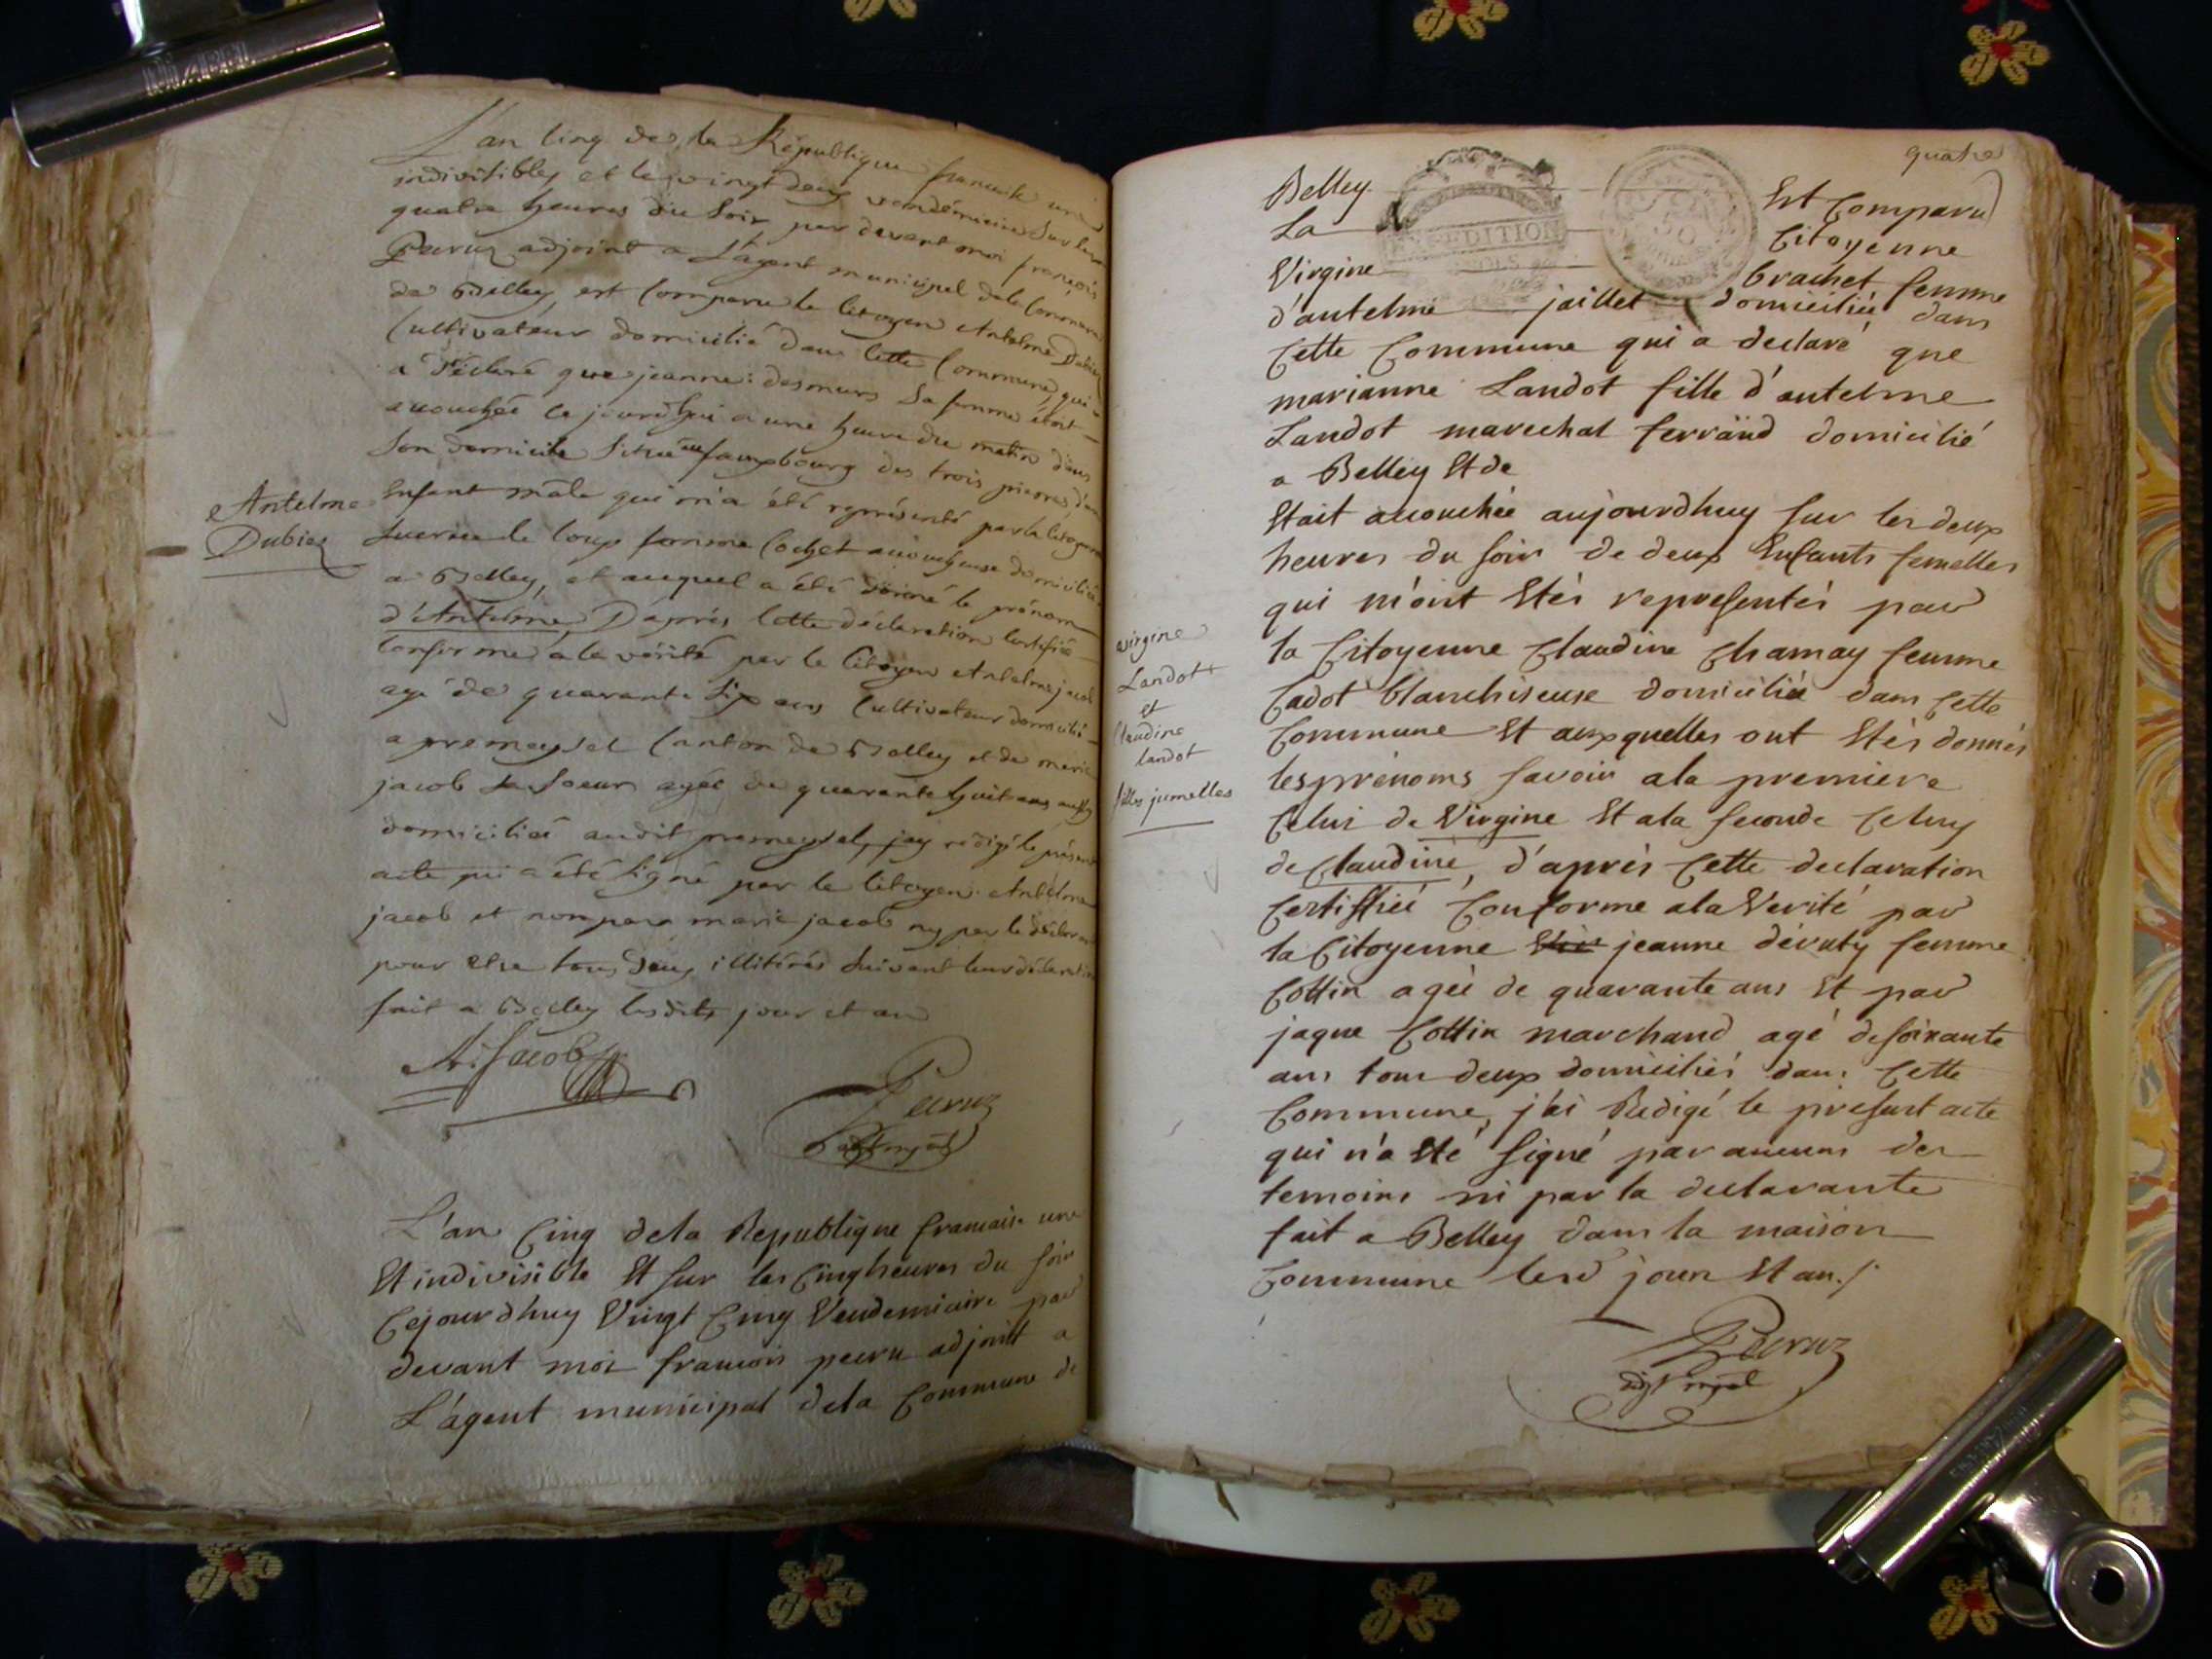 L'an cinq de la République francaise une
indivisible, et le vingt deux vendémiaire sur les
quatre heures du soir par devant moi françois
Pecruz adjoint a L'agent municipal de la Commune
de Belley, est comparu le citoyen Antelme Dubiez
Cultivateur domicilié dans cette Commune, qui
a déclaré que jeanne desmurs sa femme étoit
accouchée ce jourdhui a une heure du matin dans
son domicile situé au fauxbourg des trois pierres d'un
Enfant mâle qui m'a été représenté par la citoyenne
le loup femme Cochet accoucheuse domiciliée
a Belley, et auquel a été donné le prénom
d'Antelme, D'après cette déclaration certifiée
conforme a la vérité par le Citoyen Antelme jacob
agé de quarante six ans Cultivateur domicilié
a premeysel Canton de Belley et de marie
jacob sa soeur agée de quarante huit ans aussy
domiciliée audit premeysel, jay rédigé le présent
acte qui a été signé par le Citoyen Antelme
jacob et non par marie jacob ny par le déclarant
pour etre tous deux illitérés suivant leur déclaration
fait a Belley lesdits jour et an
Antelme
Dubiez
A. Jacob
Pecruz
L'an Cinq dela Republique francaise une
Et indivisible Et sur les Cinq heures du soir
Cejourdhuy Vingt Cinq Vendemiaire par
devant moi francois pecru adjoint a
L'agent municipal dela Commune de
quatre
Belley Est Comparu
La EXPEDITION Citoyenne
Virgine brachet femme
d'antelme jaillet domiciliée dans
Cette Commune qui a declaré que
marianne Landot fille d'antelme
Landot marechal ferrand domicilié
a Belley Et de
Etait accouchée aujourdhuy sur les deux
heures du soir de deux Enfants femelles
qui m'ont Etés representés par
la Citoyenne Claudine Chamay femme
Cadot blanchiseuse domiciliée dans Cette
Commune Et auxquelles ont Etés donnés
les prénoms savoir a la premiere
Celui de Virgine Et ala seconde Celuy
de Claudine, d'après Cette declaration
Certiffiée Conforme ala Verité par
la Citoyenne jeanne déruty femme
Cottin agée de quarante ans Et par
jaque Cottin marchand agé de soixante
ans tous deux domiciliés dans Cette
Commune, j'ai Redigé le present acte
qui n'a Eté signé par aucuns des
temoins ni par la declarante
fait a Belley dans la maison
Commune lesd jour Et an./.
virgine
Landot
et
Claudine
landot
filles jumelles
Pecruz
adjt mpal